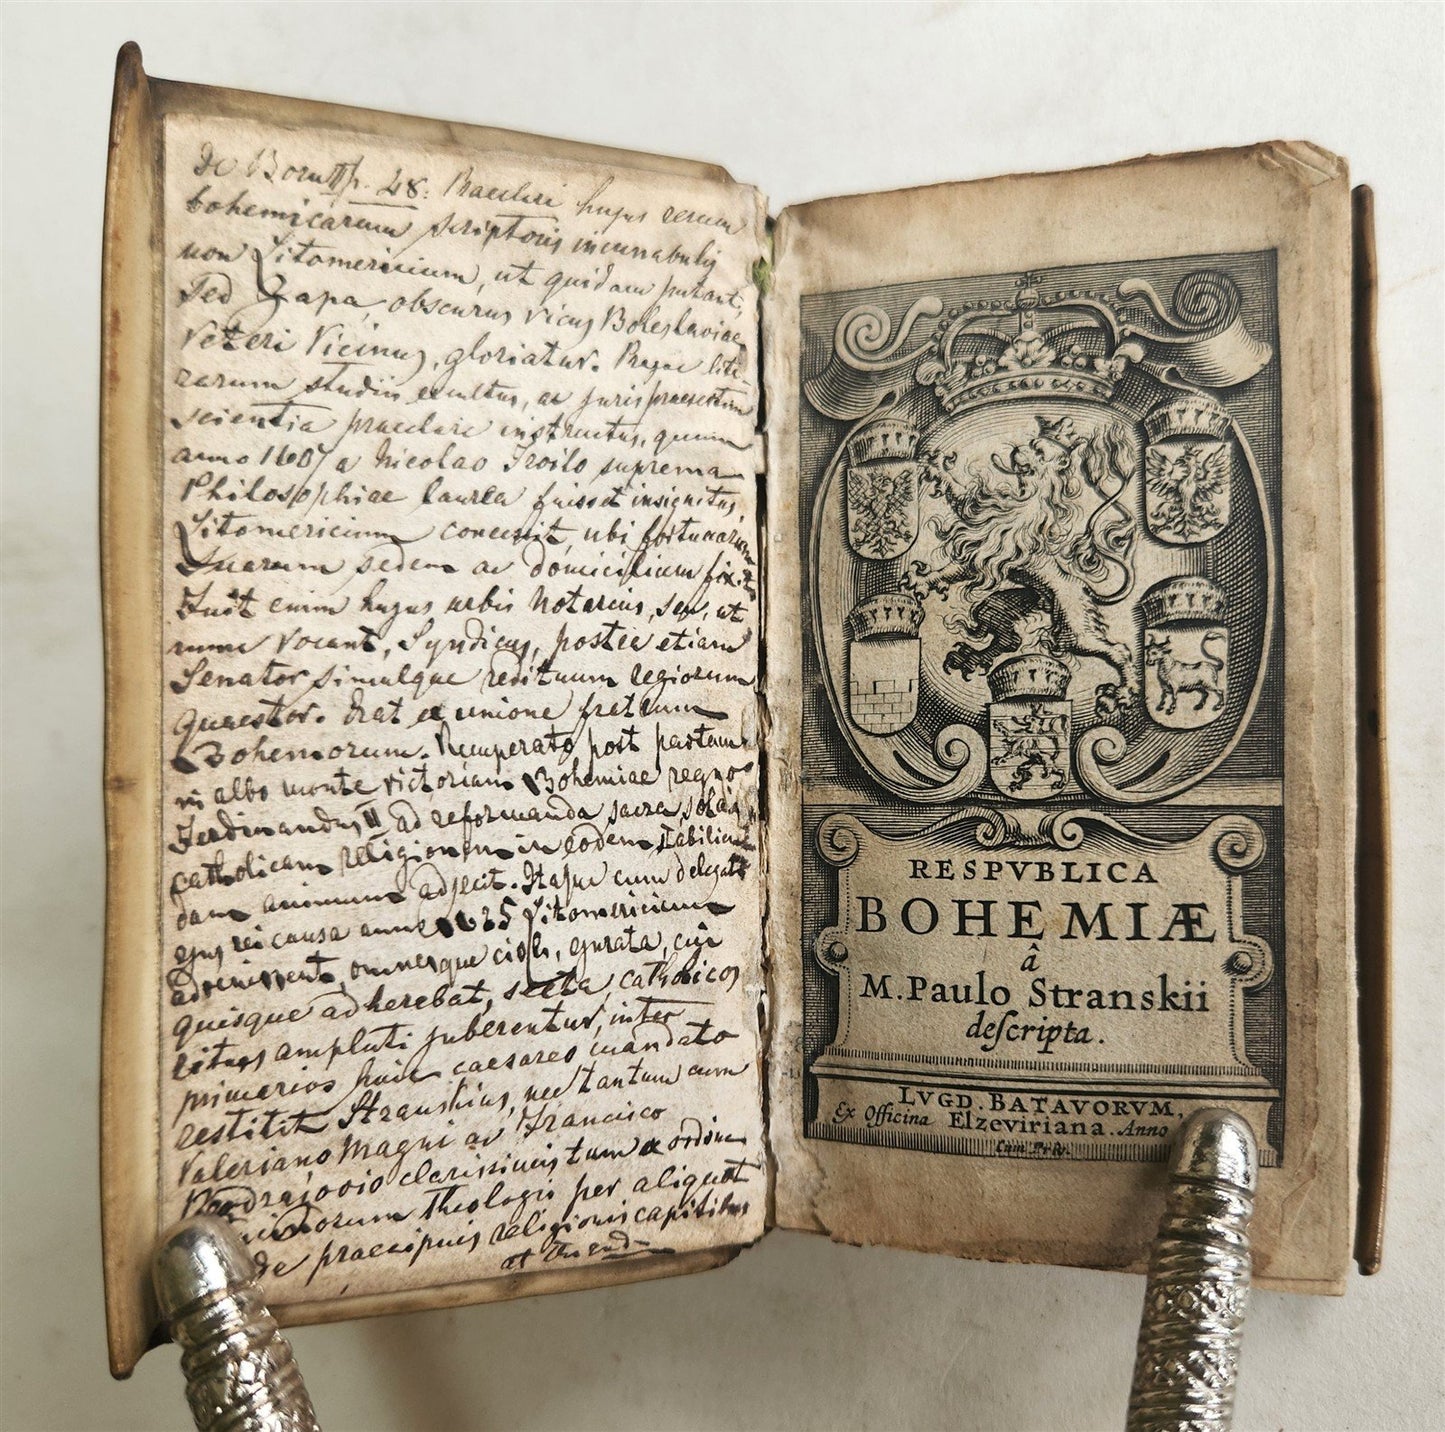 De Born II p. 48. Praeclari hujus rerum
bohemicarum scriptoris incunabulis
non Litomericium, ut quidam putant,
sed Zapa, obscurus vicus Boleslaviae
Veteri Vicinus, gloriatur. Hugue lite-
rarum studiis excultus, ac juris praesertim
scientia praeclare instructus, quum
anno 1607 a Nicolao Troilo suprema
Philosophiae laurea fuisset insignitus,
Litomericium concessit, ubi fortunarum
suarum sedem ac domicilium fixit.
Fuit enim hujus urbis Notarius, seu, ut
nunc vocant, Syndicus, postea etiam
Senator simulque redituum regiorum
quaestor. Erat ex unione fratrum
Bohemorum. Recuperato post partam
in albo monte victoriam Bohemiae regno
Ferdinandus II ad reformanda sacra, solamq
catholicam religionem in eodem stabilien-
dam animum adjecit. Itaque cum delegati
ejus rei causa anno 1625 Litomericium
advenissent, omnesque cives, ejurata, cui
quisque adhaerebat, secta, catholicos
ritus amplecti juberentur, inter
primarios huic caesareo mandato
restitit Stranskius, nec tantum cum
Valeriano Magni ac Francisco
clarissimis tum ex ordine
Theologis per aliquot
de praecipuis religionis capitibus
RESPVBLICA
BOHEMIÆ
â
M. Paulo Stranskii
descripta.
LVGD. BATAVORVM,
Ex Officina Elzeviriana. Anno
Cum Priv.